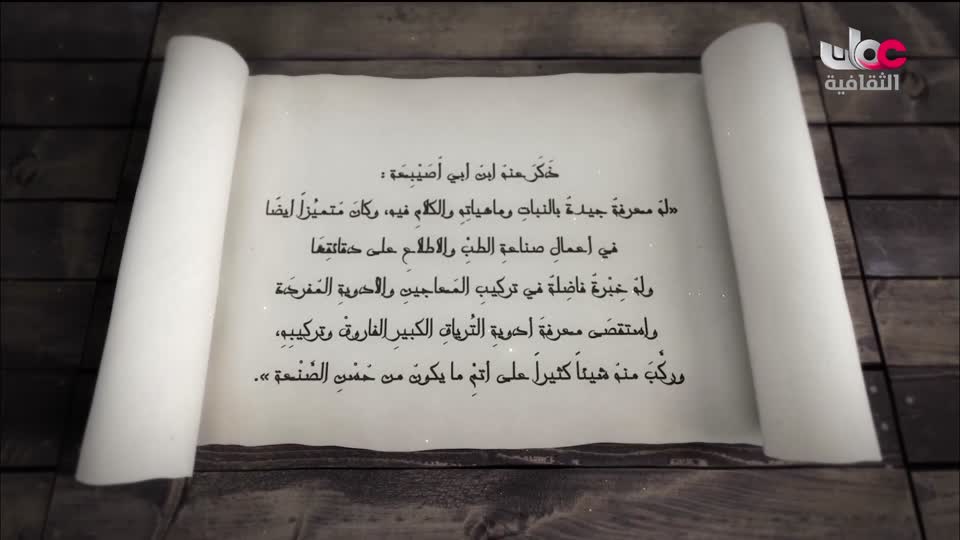 عمان
الثقافية
ذَكَرَ عنهُ ابنُ أبي أُصَيْبِعَة :
«لهُ معرفةٌ جيدةٌ بالنباتِ وماهياتِهِ والكلامِ فيهِ، وكانَ مُتميُزاً أيضًا
في أعمالِ صناعةِ الطبِّ والاطلاعِ على دقائقِهَا
ولهُ خِبْرةٌ فاضِلةٌ في تركيبِ المَعاجينِ والأدويةِ المُفردَة
واستقصَى معرفةَ أدويةِ التُرياقِ الكبيرِ الفاروقْ وتركيبِهِ،
وركَّبَ منهُ شيئاً كثيراً على أتمِّ ما يكونُ من حُسْنِ الصَّنْعة ».